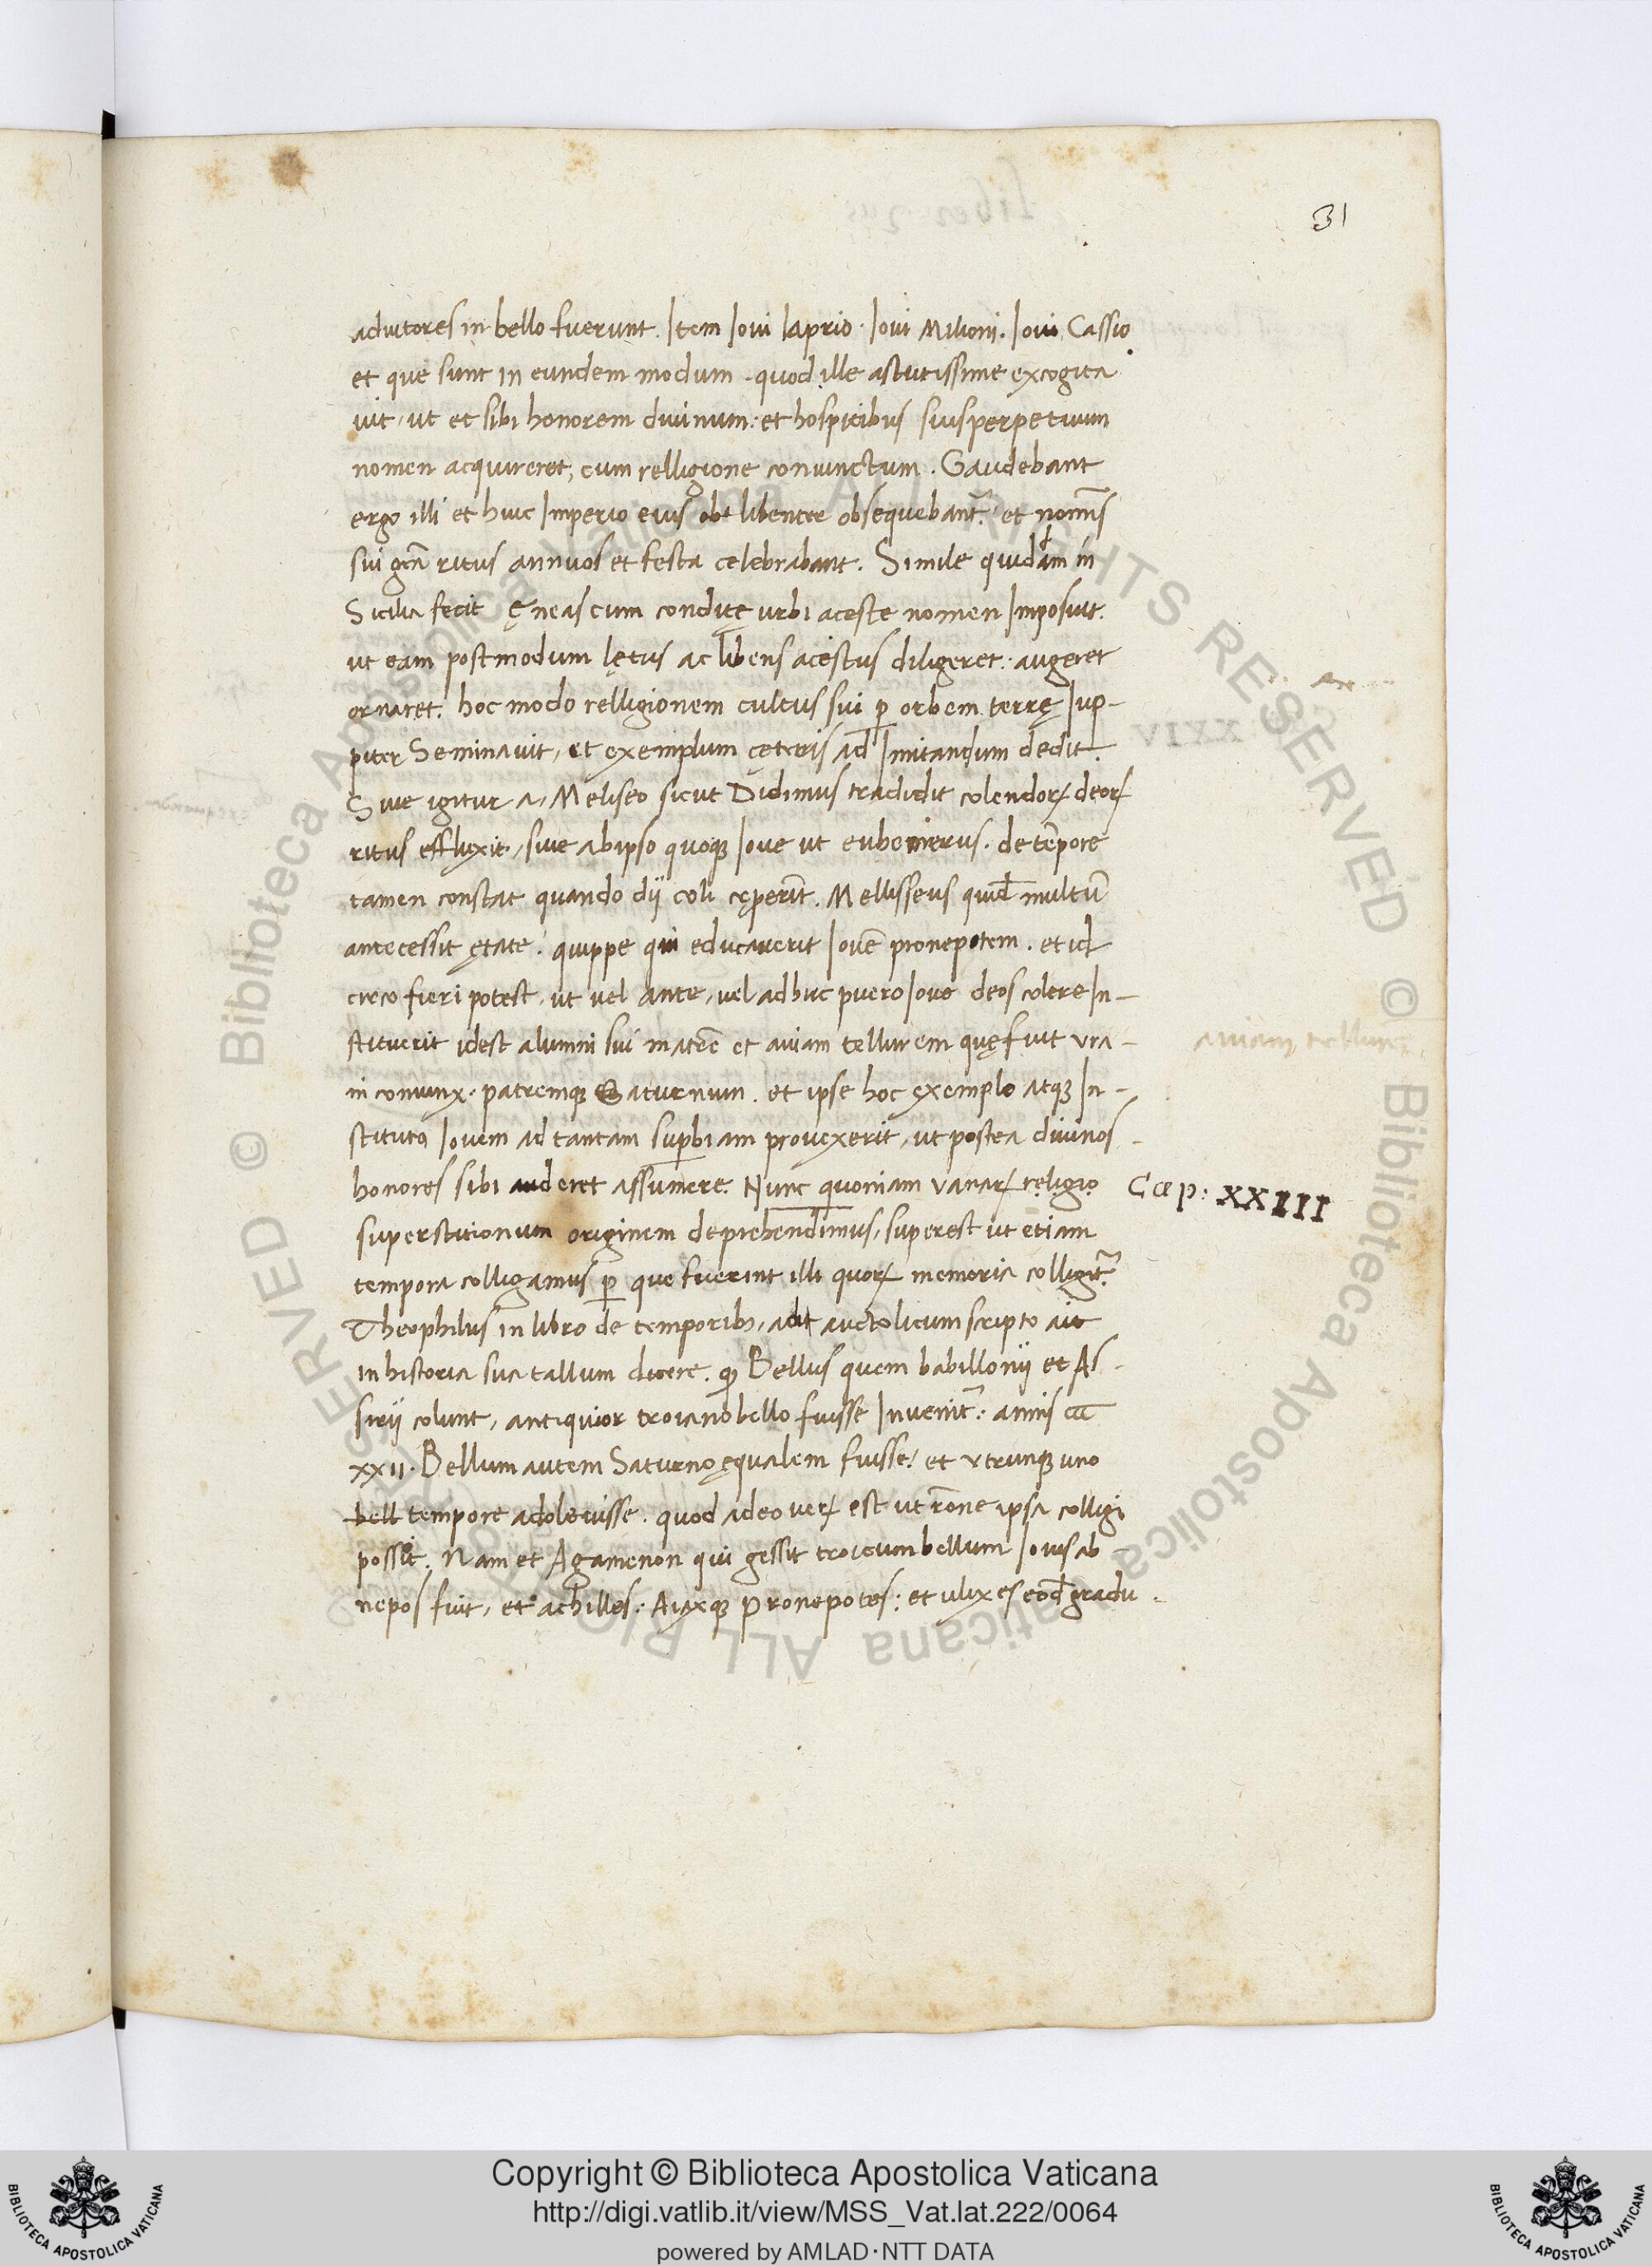 31
adiutores in bello fuerunt. Item Ioui laprio. Ioui Milioni. Ioui Cassio
et que sunt in eundem modum. quod ille astutissime excogita
uit, ut et sibi honorem diuinum: et hospitibus suis perpetuum
nomen acquireret, cum relligione coniunctum. Gaudebant
ergo illi et huic Imperio eius libenter obsequebant᷑. et nominis
sui gr̄a ritus annuos et festa celebrabant. Simile quiddam in
Sicilia fecit ęneas cum conditę urbi aceste nomen Imposuit.
ut eam postmodum lętus ac libens acestus diligeret: augeret
ornaret. hoc modo relligionem cultus sui ꝑ orbem terrę Iup-
piter Seminauit, et exemplum cęteris ad Imitandum dedit.
Siue igitur a, Meliseo sicut Didimus tradidit colendoꝝ deoꝝ
ritus effluxit, siue ab ipso quoqꝫ Ioue ut euhemerus. de tēpore
tamen constat quando dij coli cęperīt. Mellisseus quid̄ multū
antecessit ętate: quippe qui educauerit Iouē pronepotem. et id
circo fieri potest, ut uel ante, uel adhuc puero Ioue deos colere In-
stituerit idest alumni sui matrē et auiam tellurem quę fuit ura-
ni coniunx. patremqꝫ Saturnum. et ipse hoc exemplo atqꝫ In-
stituto Iouem ad tantam suꝑbiam prouexerit, ut postea diuinos
honores sibi auderet assumere. Nunc quoniam vanaꝝ religio
Cap: XXIII
superstitionum originem deprehendimus, superest ut etiam
tempora colligamus ꝑ que fuerint illi quoꝝ memoria colligit᷑.
Theophilus in libro de temporibꝫ, ad auctolicum scripto ait
in historia sua tallum dicere. ꝙ Bellus quem babillonij et As-
sirij colunt, antiquior troiano bello fuisse Inuenit᷑: annis ccc
xxii. Bellum autem Saturno ęqualem fuisse: et utrunqꝫ uno
bell tempore adoleuisse. quod adeo ueꝝ est ut rōne ipsa colligi
possit. Nam et Agamenon qui gessit troicum bellum Iouis ab-
nepos fuit, et achilles: Aiaxqꝫ Pronepotes: et ulixes eod̄ gradu.
auiam tellurem
© Biblioteca Apostolica Vaticana ALL RIGHTS RESERVED
© Biblioteca Apostolica Vaticana ALL RIGHTS RESERVED
Copyright © Biblioteca Apostolica Vaticana
http://digi.vatlib.it/view/MSS_Vat.lat.222/0064
powered by AMLAD·NTT DATA
BIBLIOTECA APOSTOLICA VATICANA
BIBLIOTECA APOSTOLICA VATICANA